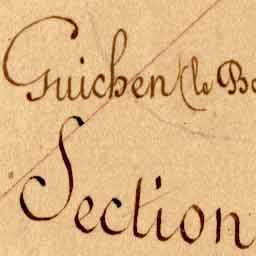 Guichen (le Bo
Section